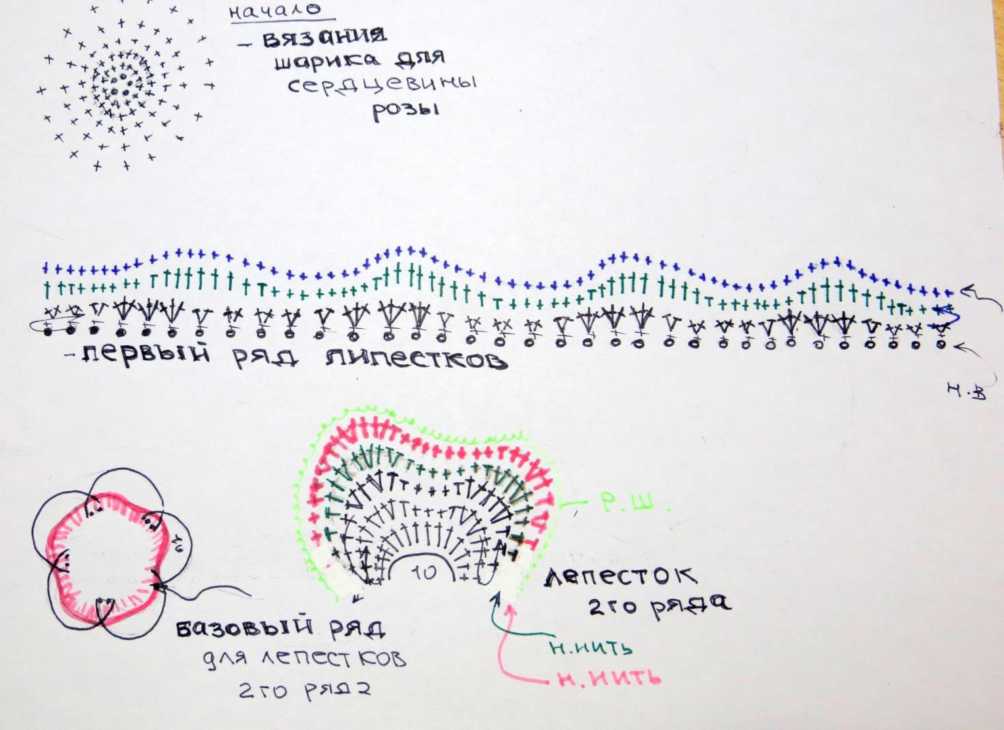 начало
- вязания
шарика для
сердцевины
розы
- первый ряд липестков
Н.В
Р.Ш.
10
10
лепесток
2го ряда
базовый ряд
для лепестков
2го ряда
н.нить
н.нить